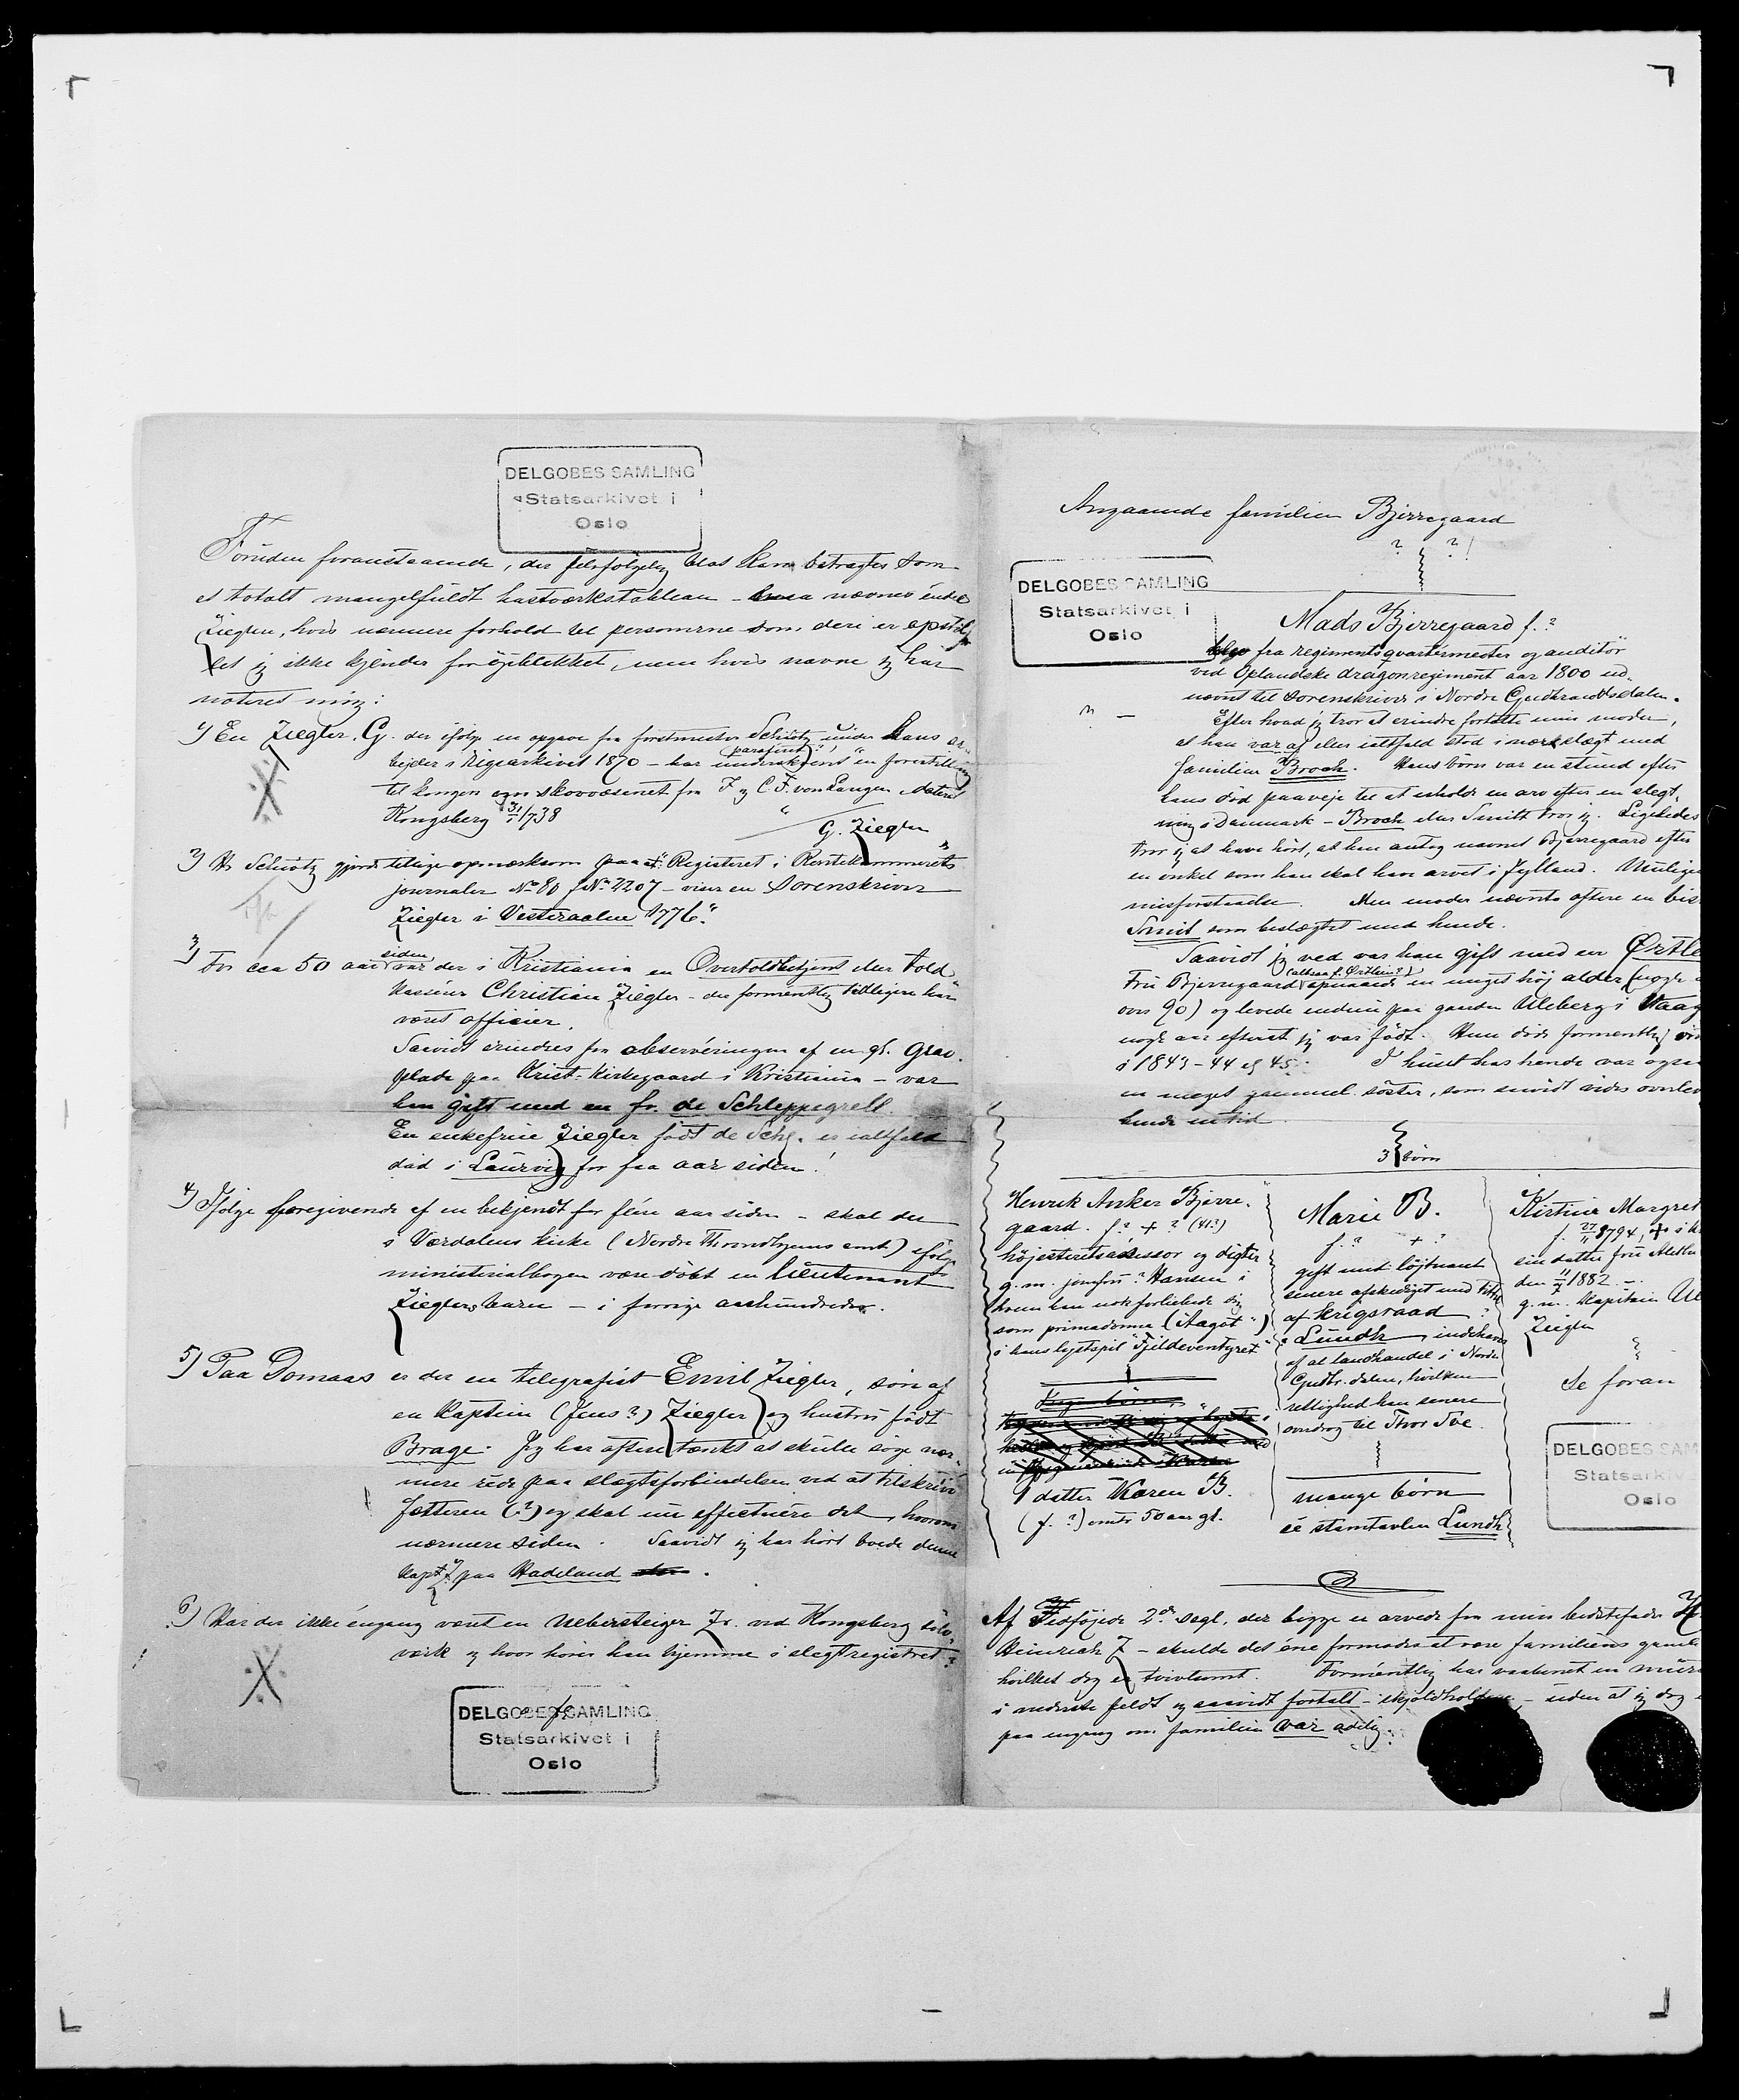 DELGOBES SAMLING
Statsarkivet i
Oslo
Foruden foranstaaende, der selvfølgelig blot kan betragtes som
et totalt mangelfuldt hastværkstableau - kan nævnes endel
Ziegler, hvis nærmere forhold til personerne som deri er opstil-
let jeg ikke kjender for øieblikket, men hvis navne jeg har
noteret mig:
1) En Ziegler, G. der ifølge en opgave fra forstmester Schiøtz under hans ar-
bejder i Rigsarkivet 1870 - har underskrevet en forestilling
til kongen om skovvæsenet fra F og C. F. von Langen dateret
Kongsberg 31/1 1738
G. Ziegler
2) Hr Schiøtz gjorde tillige opmærksom paa at "Registeret i Rentekammerets
journaler No 80 f No 2207 - viser en Sorenskriver
Ziegler i Vesteraalen 1776."
3) For cca 50 aar siden var der i Kristiania en Overtoldbetjent eller Told
kasserer Christian Ziegler - der formentlig tidligere har
været officier.
Saavidt erindres fra observeringen af en gl. Grav-
plade paa Krist-Kirkegaard i Kristiania - var
han gift med en fr. de Schleppegrell.
En enkefrue Ziegler født de Schl. er ialtfald
død i Laurvig for faa aar siden!
4) Ifølge foregivende af en bekjendt for flere aar siden - skal der
i Værdalens kirke (Nordre Throndhjems amt.) ifølge
ministerialbogen være døbt en Lieutenant
Zieglers barn - i forrige aarhundrede.
5) Paa Domaas er der en telegrafist Emil Ziegler, søn af
en Kaptein (Jens?) Ziegler og hustru født
Brage. Jeg har oftere tænkt at skulle søge nær-
mere rede paa slægtsforbindelsen ved at tilskrive
fætteren (?) og skal nu effectuere det, hvorom
nærmere siden. Saavidt jeg har hørt boede denne
Kapt. Z. paa Hadeland
6) Har der ikke engang været en Uebersteiger Zr. ved Kongsberg sølv-
værk og hvor hører han hjemme i slegtregistret?
DELGOBES SAMLING
Statsarkivet i
Oslo
Angaaende familien Bjerregaard
? ?!
DELGOBES SAMLING
Statsarkivet i
Oslo
Mads Bjerregaard f. ?
fra regimentsqvartermester og auditør
ved Oplandske dragonregiment aar 1800 ud-
nævnt til Sorenskriver i Nordre Gudbrandsdalen.
Efter hvad jeg tror at erindre fortalte min moder,
at han var af eller ialtfald stod i nær slægt med
familien Broch. Hans børn var en stund efter
hans død paaveje til at erholde en arv efter en slegt-
ning i Danmark - Broch eller Smith tror jeg. Ligeledes
tror jeg at have hørt, at han antog navnet Bjerregaard efter
en onkel som han skal have arvet i Jylland. Muligen
misforstaaelse. Min moder nævnte oftere en bis
Smit som beslægtet med hende.
Saavidt jeg ved var han gift med en Ørtle
(altsaa f. Ørtlein?)
Fru Bjerregaard opnaaede en meget høj alder (nogle
over 90) og levede endnu paa gaarden Uleberg i Vaag
nogle aar efterat jeg var født. Hun døde formentlig
i 1843-44 el 45. I huset hos hende var ogsaa
en meget gammel søster, som saavidt vides overlev
hende en tid
3 børn
Henrik Anker Bjerre-
gaard. f. ? + ? (41?)
højesteretsassessor og digter
g. m. jomfru? Hansen i
hvem han nok forliebede sig
som primadonna (Aagot")
i hans lystspil "Fjeldeventyret"
1 datter Karen B.
(f. ?) omtr 50 aar gl.
Marie B.
f. ? + ?
gift med løjtnant
senere afskediget med titel
af krigsraad
Lundh, indehaver
af al landhandel i Nordr
Gudbr. dalen, hvilken
rettighed han senere
overdrog til Thor Toe
mange børn
se stamtavlen Lundh
Kirtine Margret
f. 27/11 1794, + i
sin datter frue
den 11/ 1882 -
g. m. Kaptein Ul
Ziegler
Se foran
DELGOBES SAM
Statsarkive
Oslo
Af Hosføjede 2de segl, der begge er arvede fra min bedstefader H
Heinrich Z - skulde det ene formodes at være familiens gamle
hvilket dog er tvivlsomt. Formentlig har vaabenet en mur
i nederste feldt og saavidt fortalt - skjoldholdere - uden at jeg dog
paa engang om familien var adelig.